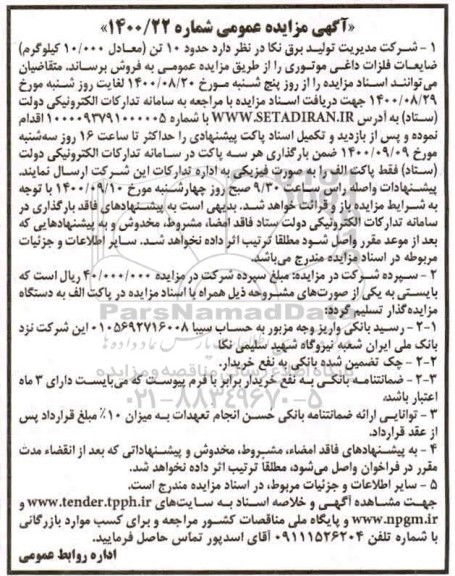 «آگهی مزایده عمومی شماره ۱۴۰۰/۲۲»
۱ - شرکت مدیریت تولید برق نکا در نظر دارد حدود ۱۰ تن (معادل ۱۰/۰۰۰ کیلوگرم)
ضایعات فلزات داغی موتوری را از طریق مزایده عمومی به فروش برساند. متقاضیان
می‌توانند اسناد مزایده را از روز پنج شنبه مورخ ۱۴۰۰/۰۸/۲۰ لغایت روز شنبه مورخ
۱۴۰۰/۰۸/۲۹ جهت دریافت اسناد مزایده با مراجعه به سامانه تدارکات الکترونیکی دولت
(ستاد) به آدرس WWW.SETADIRAN.IR با شماره ۱۰۰۰۰۹۳۷۹۱۰۰۰۰۰۵ اقدام
نموده و پس از بازدید و تکمیل اسناد پاکت پیشنهادی را حداکثر تا ساعت ۱۶ روز سه‌شنبه
مورخ ۱۴۰۰/۰۹/۰۹ ضمن بارگذاری هر سه پاکت در سامانه تدارکات الکترونیکی دولت
(ستاد) فقط پاکت الف را به صورت فیزیکی به اداره تدارکات این شرکت ارسال نمایند.
پیشنهادات واصله راس ساعت ۹/۳۰ صبح روز چهارشنبه مورخ ۱۴۰۰/۰۹/۱۰ با توجه
به شرایط مزایده باز و قرائت خواهد شد. بدیهی است به پیشنهادهای فاقد بارگذاری در
سامانه تدارکات الکترونیکی دولت ستاد فاقد امضا، مشروط، مخدوش و به پیشنهادهایی که
بعد از موعد مقرر واصل شود مطلقا ترتیب اثر داده نخواهد شد. سایر اطلاعات و جزئیات
مربوطه در اسناد مزایده مندرج می‌باشد.
۲ - سپرده شرکت در مزایده: مبلغ سپرده شرکت در مزایده ۴۰/۰۰۰/۰۰۰ ریال است که
بایستی به یکی از صورت‌های مشروحه ذیل همراه با اسناد مزایده در پاکت الف به دستگاه
مزایده‌گذار تسلیم گردد:
۲-۱ - رسید بانکی واریز وجه مزبور به حساب سیبا ۰۱۰۵۶۹۲۷۱۶۰۰۸ این شرکت نزد
بانک ملی ایران شعبه نیروگاه شهید سلیمی نکا
۲-۲ - چک تضمین شده بانکی به نفع خریدار.
۲-۳ - ضمانتنامه بانکی به نفع خریدار برابر با فرم پیوست که می‌بایست دارای ۳ ماه
اعتبار باشد.
۳ - توانایی ارائه ضمانتنامه بانکی حسن انجام تعهدات به میزان ۱۰٪ مبلغ قرارداد پس
از عقد قرارداد.
۴ - به پیشنهادهای فاقد امضاء، مشروط، مخدوش و پیشنهاداتی که بعد از انقضاء مدت
مقرر در فراخوان واصل می‌شود، مطلقا ترتیب اثر داده نخواهد شد.
۵ - سایر اطلاعات و جزئیات مربوط، در اسناد مزایده مندرج است.
جهت مشاهده آگهی و خلاصه اسناد به سایت‌های www.tender.tpph.ir و
www.npgm.ir و پایگاه ملی مناقصات کشور مراجعه و برای کسب موارد بازرگانی
با شماره تلفن ۰۹۱۱۱۵۲۶۲۰۴ آقای اسدپور تماس حاصل فرمایید.
اداره روابط عمومی
ParsNamadData
۰۲۱-۸۸۳۴۹۶۷۰-۵